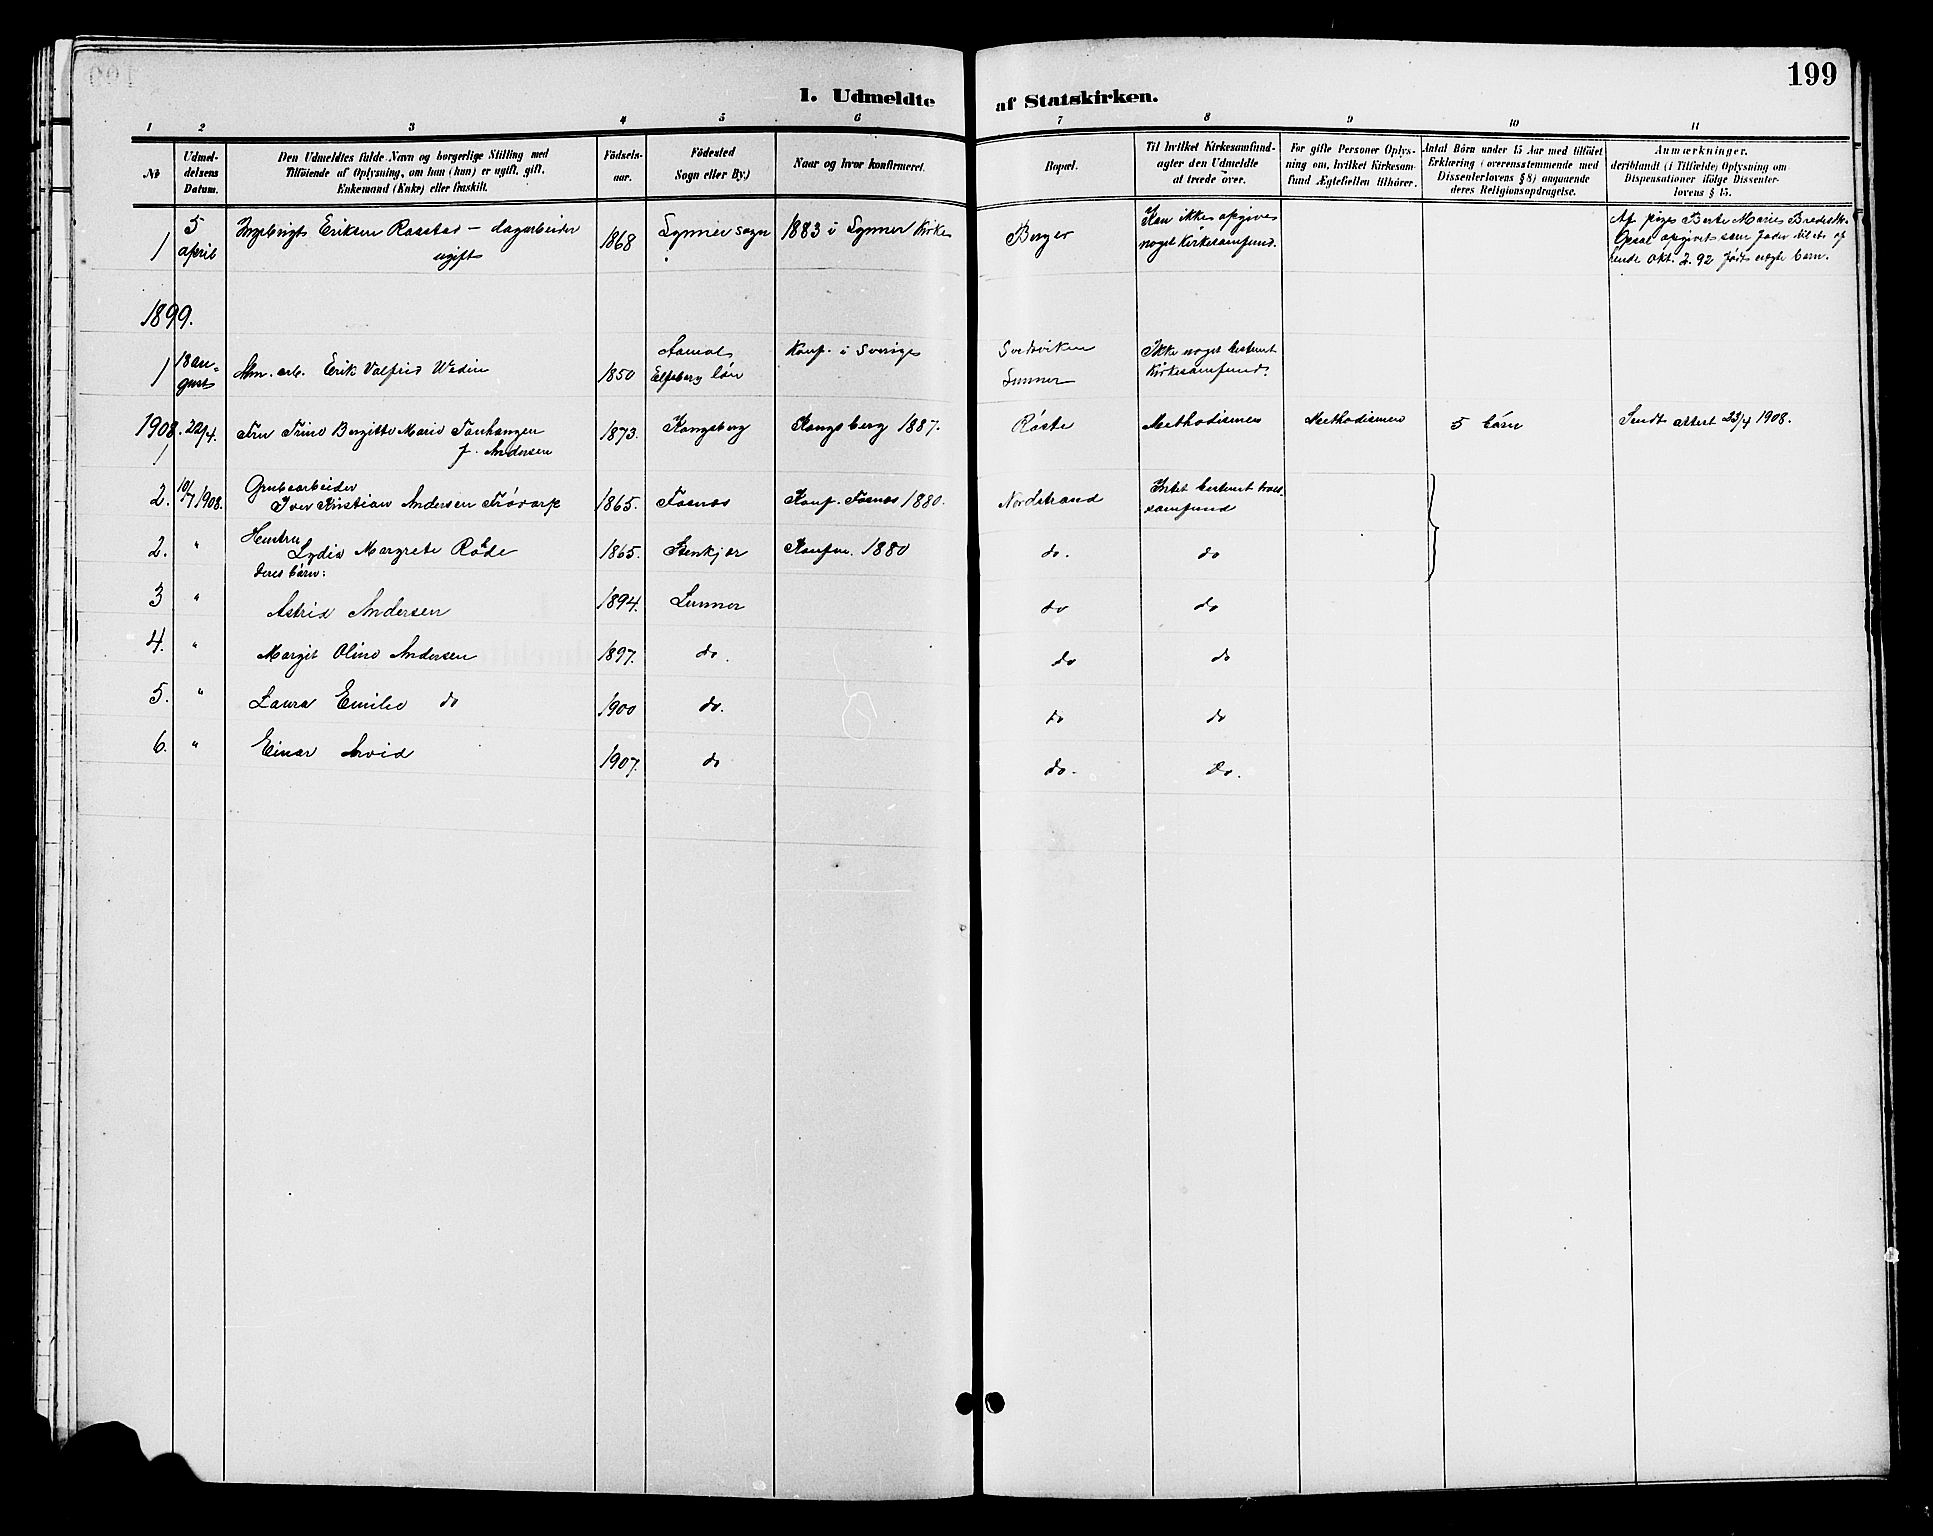 199
1. Udmeldte af Statskirken.
1 2 3 4 5 6 7 8 9 10 11
No
Udmeldelsens Datum.
Den Udmeldtes fulde Navn og borgerlige Stilling med
Tilføiende af Oplysning, om han (hun) er ugift, gift,
Enkemand (Enke) eller fraskilt.
Födselsaar.
Födested
Sogn eller By.)
Naar og hvor konfirmeret.
Bopæl.
Til hvilket Kirkesamfund
agter den Udmeldte
at træde over.
For gifte Personer Oplys-
ning om, hvilket Kirkesam-
fund Ægtefællen tilhører.
Antal Börn under 15 Aar med tilföiet
Erklæring (overensstemmende med
Dissenterlovens § 8) angaaende
deres Religionsopdragelse.
Anmærkninger.
deriblandt (i Tilfælde) Oplysning om
Dispensationer ifölge Dissenter-
lovens § 15.
1 5 april Ingebrigt Eriksen Raastad – dagarbeider ugift 1868 Lynner sogn 1883 i Lynner Kirke Berger Kan ikke opgives noget Kirkesamfund.
Af pige Berte Marie
opgivet som fader til et
Okt. 2. 92 født uægte barn.
1899.
1 18 august arb. Erik Valfrid Wedin 1850 Aamol Elfsborg län Konf. i Sverige Svedsviken Lunner Ikke noget bestemt Kirkesamfund.
1908.
1 22/4. Fru Trine Bergitte Marie f. Andersen 1873. Kongsberg Kongsberg 1887. Røste Methodismen Methodismen 5 børn Sendt attest 23/4 1908.
2. 10/7 1908. Grubearbeider Iver Kristian Andersen 1865. Fosnes Konf. Fosnes 1880. Nordstrand Intet bestemt troes-samfund
2. " Hustru Lydia Margrete Røde 1865. Stenkjær Konf. 1880 do. do
deres børn:
3 " Astrid Andersen 1894. Lunner do do
4. " Margit Oline Andersen 1897. do. do do
5. " Laura Emilie do 1900 do. do do
6. " Einar Arvid 1907. do do. do.